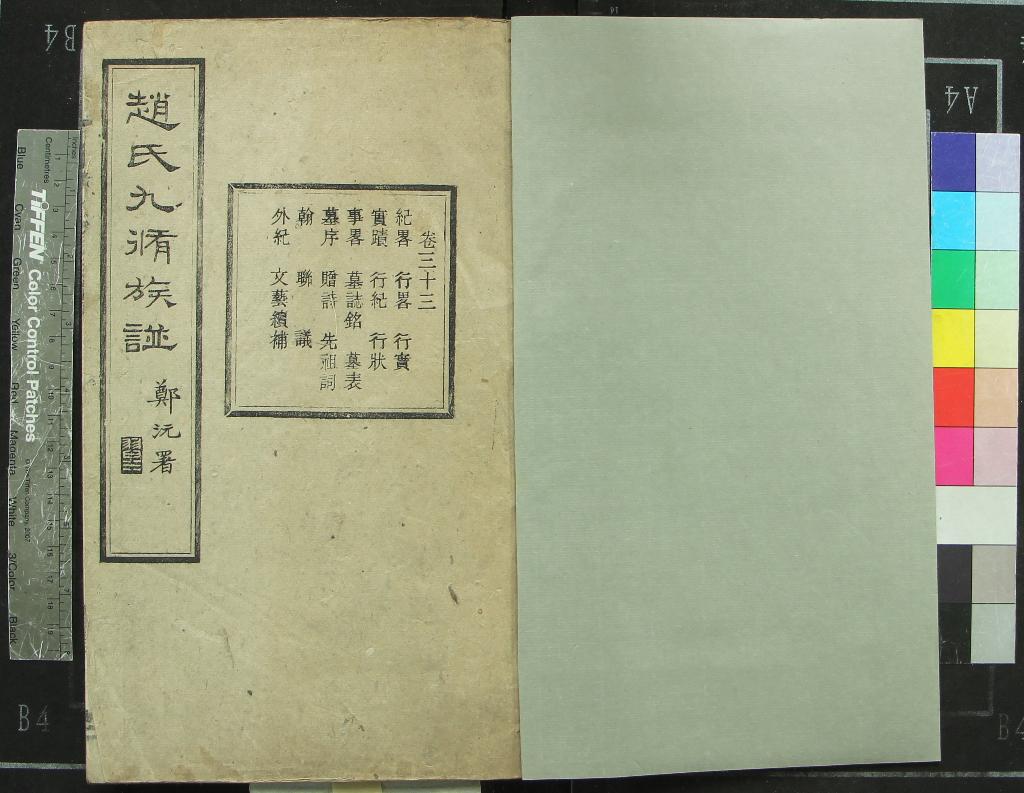 趙氏九脩族譜
鄭沅署
卷三十三
紀畧 行畧 行實
實蹟 行紀 行狀
事畧 墓誌銘 墓表
墓序 贈詩 先祖詞
翰 聯 議
外紀 文藝續補
B4
A4
B4
B4
Inches
Centimetres
TIFFEN Color Control Patches
Blue
Cyan
Green
Yellow
Red
Magenta
White
3/Color
Black